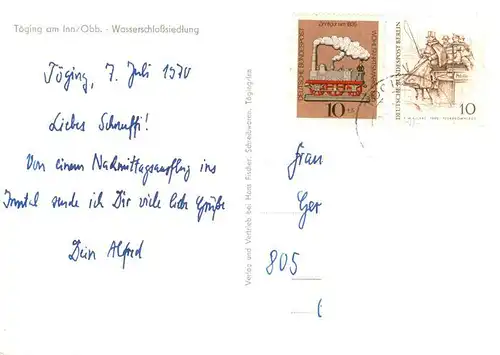 Töging am Inn/Obb. - Wasserschloßsiedlung
Töging, 7. Juli 1970
Liebes Schnuffi!
Von einem Nachmittagsausflug ins
Inntal sende ich Dir viele liebe Grüße
Dein Alfred
Verlag und Vertrieb bei Hans Fischer, Schreibwaren, Töging/Inn
Zinnfiguren 1835
DEUTSCHE BUNDESPOST
WOHLFAHRTSMARKE
10+5
DEUTSCHE BUNDESPOST BERLIN
10
Frau
Ger
805